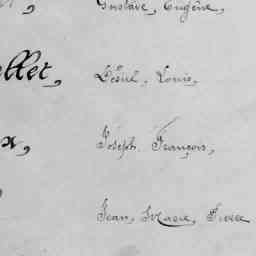 Gustave, Eugène,
llet, Désiré, Louis,
x, Joseph, François,
Jean, Marie, Pierre